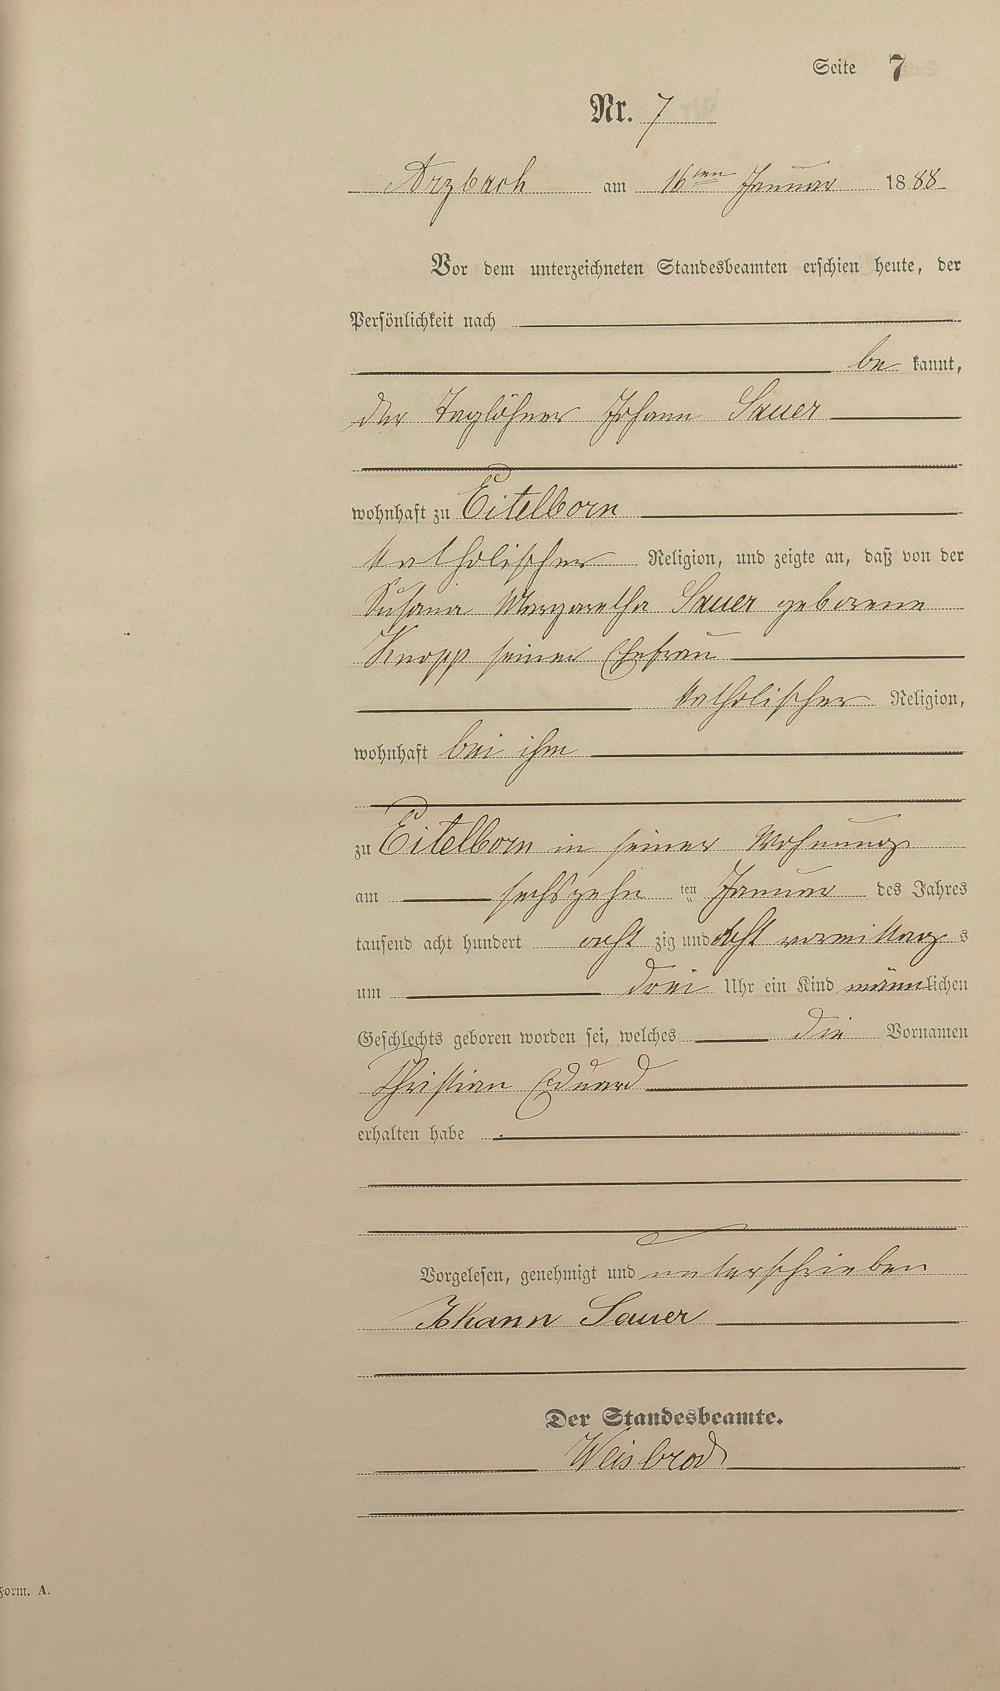 Seite 7
Nr. 7
Arzbach am 16ten Januar 1888
Vor dem unterzeichneten Standesbeamten erschien heute, der
Persönlichkeit nach
be kannt,
der Taglöhner Johann Sauer
wohnhaft zu Eitelborn
katholischer Religion, und zeigte an, daß von der
Susana Margaretha Sauer geborene
Knopp seiner Ehefrau
katholischer Religion,
wohnhaft bei ihm
zu Eitelborn in seiner Wohnung
am sechszehn ten Januar des Jahres
tausend acht hundert acht zig und acht vormittag s
um drei Uhr ein Kind männlichen
Geschlechts geboren worden sei, welches die Vornamen
Christian Eduard
erhalten habe
Vorgelesen, genehmigt und unterschrieben
Johann Sauer
Der Standesbeamte.
Weisbrod
Form. A.